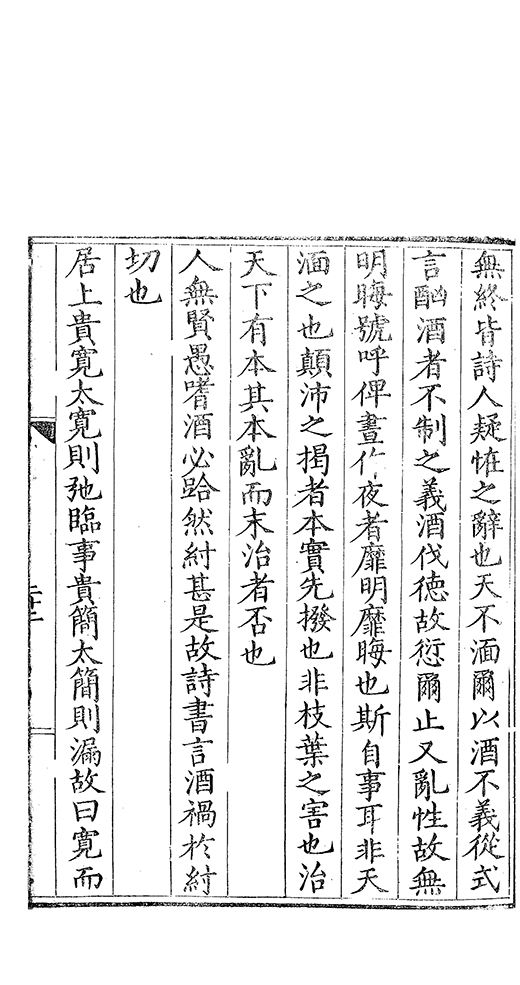 無終皆詩人疑恠之辭也天不湎爾以酒不義從式
言酗酒者不制之義酒伐徳故愆爾止又亂性故無
明晦號呼俾晝作夜者靡明靡晦也斯自事耳非天
湎之也顛沛之掲者本實先撥也非枝葉之害也治
天下有本其本亂而末治者否也
人無賢愚嗜酒必跲然紂甚是故詩書言酒禍於紂
切也
居上貴寛太寛則弛臨事貴簡太簡則漏故曰寛而